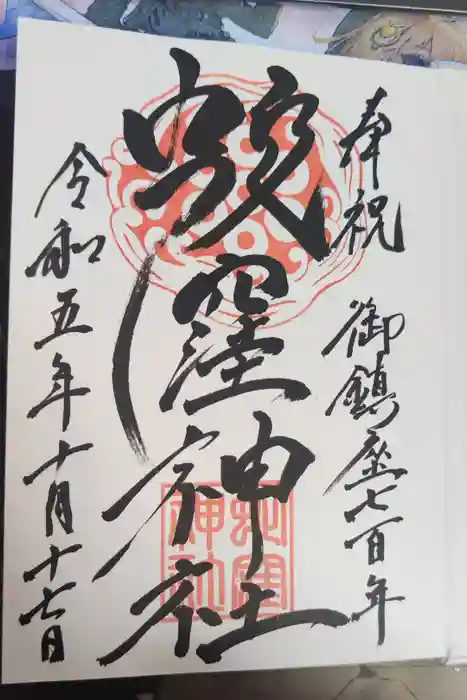 奉祝 御鎮座七百年
蛇窪神社
蛇窪
神社
令和五年十月十七日